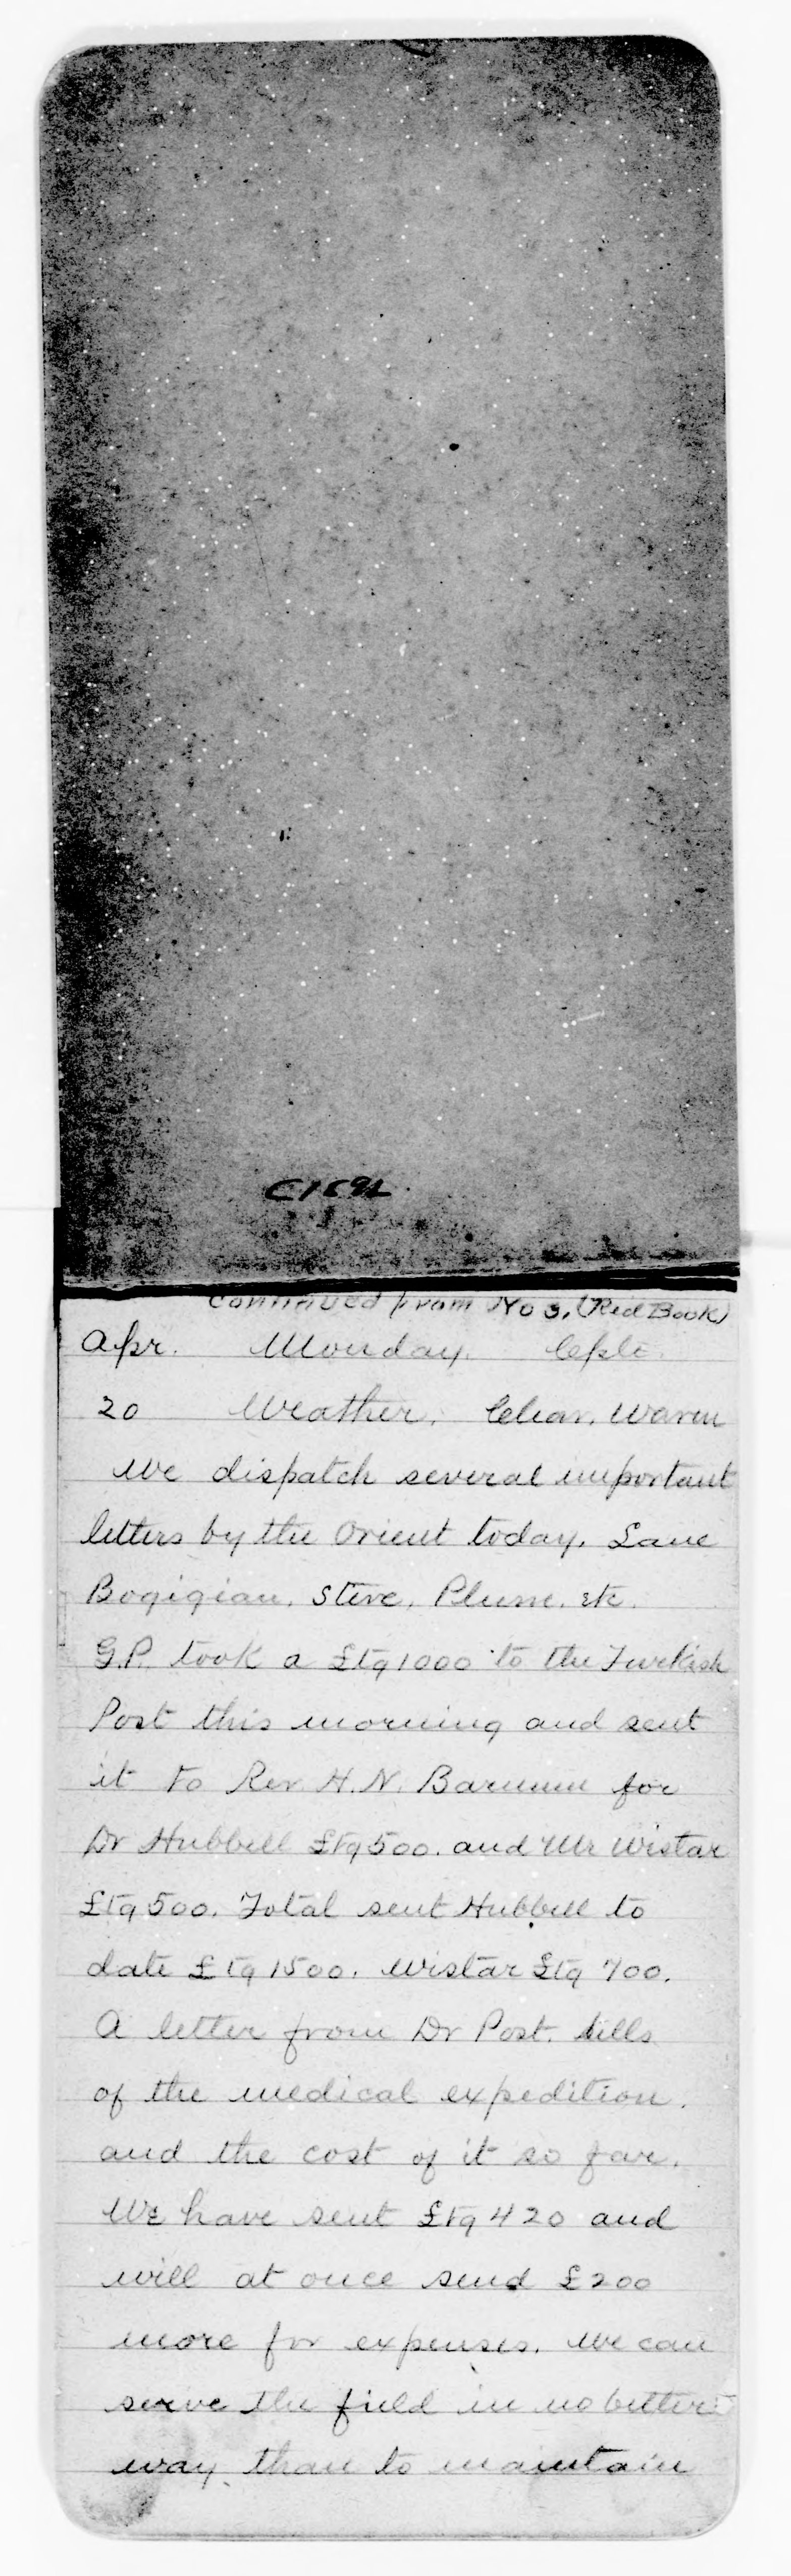 C1896
continued from No 3. (Red Book)
Apr. Monday. Cple.
20 Weather. Clear. Warm
We dispatch several important
letters by the Orient today. Lane
Bogigian. Steve. Plum. etc.
G.P. took a £tq1000 to the Turkish
Post this morning and sent
it to Rev. H. N. Barnum for
Dr Hubbell £tq500. and Mr Wistar
£tq500. Total sent Hubbell to
date £tq 1500. Wistar £tq 700.
A letter from Dr Post. tells
of the medical expedition.
and the cost of it so far.
We have sent £tq 420 and
will at once send £200
more for expenses. We can
serve the field in no better
way than to maintain